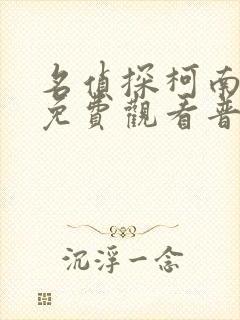 名偵探柯南
免費觀看普
沉浮一念